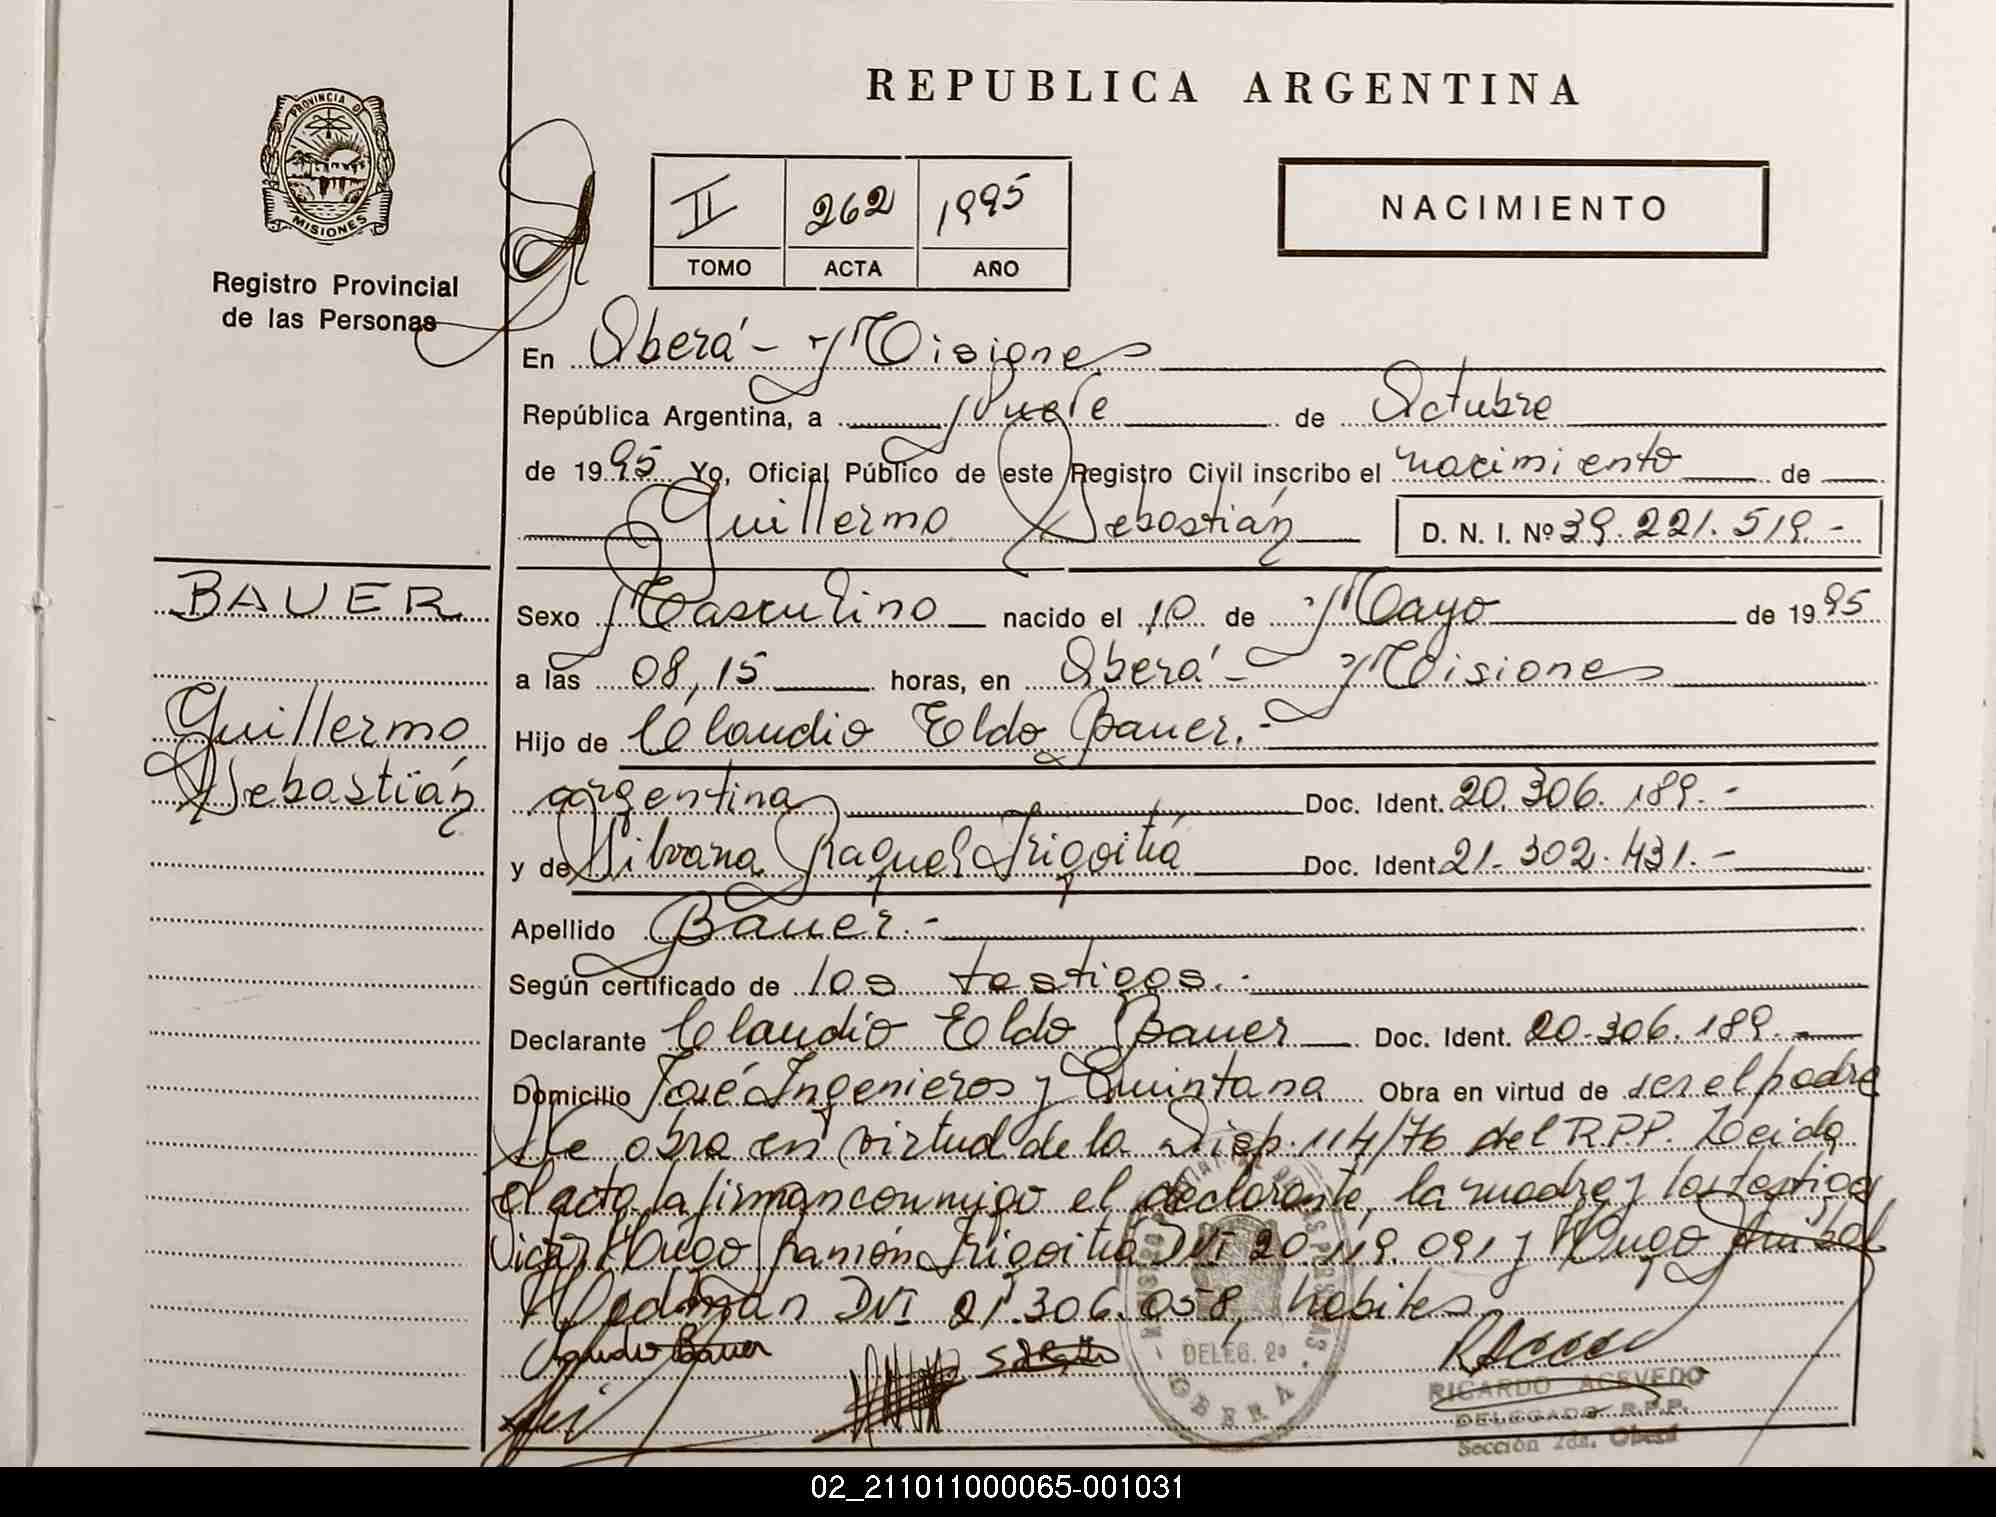 REPUBLICA ARGENTINA
PROVINCIA DE
MISIONES
Registro Provincial
de las Personas
II 262 1995
TOMO ACTA AÑO
NACIMIENTO
En Oberá - Misiones
República Argentina, a Nueve de Octubre
de 1995 Yo, Oficial Público de este Registro Civil inscribo el nacimiento de
Guillermo Sebastián D. N. I. Nº 39.221.519.-
BAUER
Guillermo
Sebastián
Sexo Masculino nacido el 10 de Mayo de 1995
a las 08,15 horas, en Oberá - Misiones
Hijo de Claudio Eldo Bauer.-
argentina Doc. Ident. 20.306.189.-
y de Silvana Raquel Irigoitia Doc. Ident. 21.302.431.-
Apellido Bauer.-
Según certificado de los testigos.-
Declarante Claudio Eldo Bauer Doc. Ident. 20.306.189.-
Domicilio José Ingenieros y Quintana Obra en virtud de ser el padre
Se obra en virtud de la Disp. 114/76 del R.P.P. Leida
el acta la firman conmigo el declarante, la madre y los testigos
Victor Hugo Ramón Irigoitia DNI 20.119.091 y Hugo Anibal
DNI 21.306.058, habiles
Claudio Bauer
DELEG. 2a
OBERA
RICARDO ACEVEDO
DELEGADO R.P.P.
Sección 2da. Oberá
02_211011000065-001031